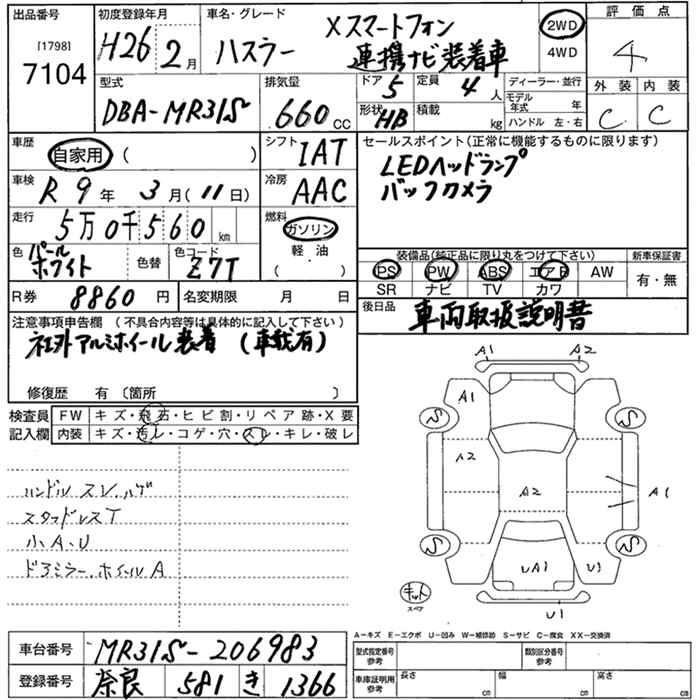 出品番号
[1798]
7104
初度登録年月
H26 2月
車名・グレード
ハスラー
Xスマートフォン
連携ナビ装着車
2WD
4WD
評価点
4
型式
DBA-MR31S
排気量
660 CC
ドア
5
定員
4人
形状
HB
積載
kg
ディーラー・並行
モデル年式 年
ハンドル 左・右
外装 内装
C C
車歴
自家用 ( )
シフト
IAT
セールスポイント(正常に機能するものに限ります)
LEDヘッドランプ
バックカメラ
車検
R 9年 3月(11日)
冷房
AAC
走行
5万0千560 km
燃料
ガソリン
軽・油
( ・ )
色
パール
ホワイト
色替
色コード
Z7T
装備品(純正品に限り丸をつけて下さい)
PS PW ABS エアB AW
SR ナビ TV カワ
新車保証書
有・無
R券 8860円
名変期限 月 日
後日品
車両取扱説明書
注意事項申告欄 (不具合内容等は具体的に記入して下さい)
社外アルミホイール装着 (車載有)
修復歴 有〔箇所 〕
検査員
記入欄
FW キズ・飛石・ヒビ割・リペア跡・X要
内装 キズ・汚レ・コゲ・穴・スレ・キレ・破レ
ハンドルスレ.ハゲ
スタッドレスT
小A.U
ドアミラー.ホイールA
A1 A2
A1
S S
A2
A2
A1
S S
UA1 U1
キット
スペア
U1
A-キズ E-エクボ U-凹み W-補修跡 S-サビ C-腐食 XX-交換済
車台番号
MR31S-206983
登録番号
奈良 581 き 1366
型式指定番号
参考
類別区分番号
参考
車庫証明用
参考
長さ cm
幅 cm
高さ cm